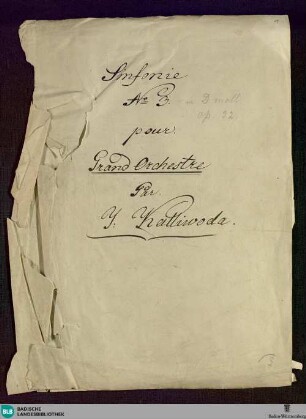 Sinfonie
No 3. in D moll
op. 32
pour
Grand Orchestre
Par
J. Kalliwoda.
BLB BADISCHE
LANDESBIBLIOTHEK
Baden-Württemberg